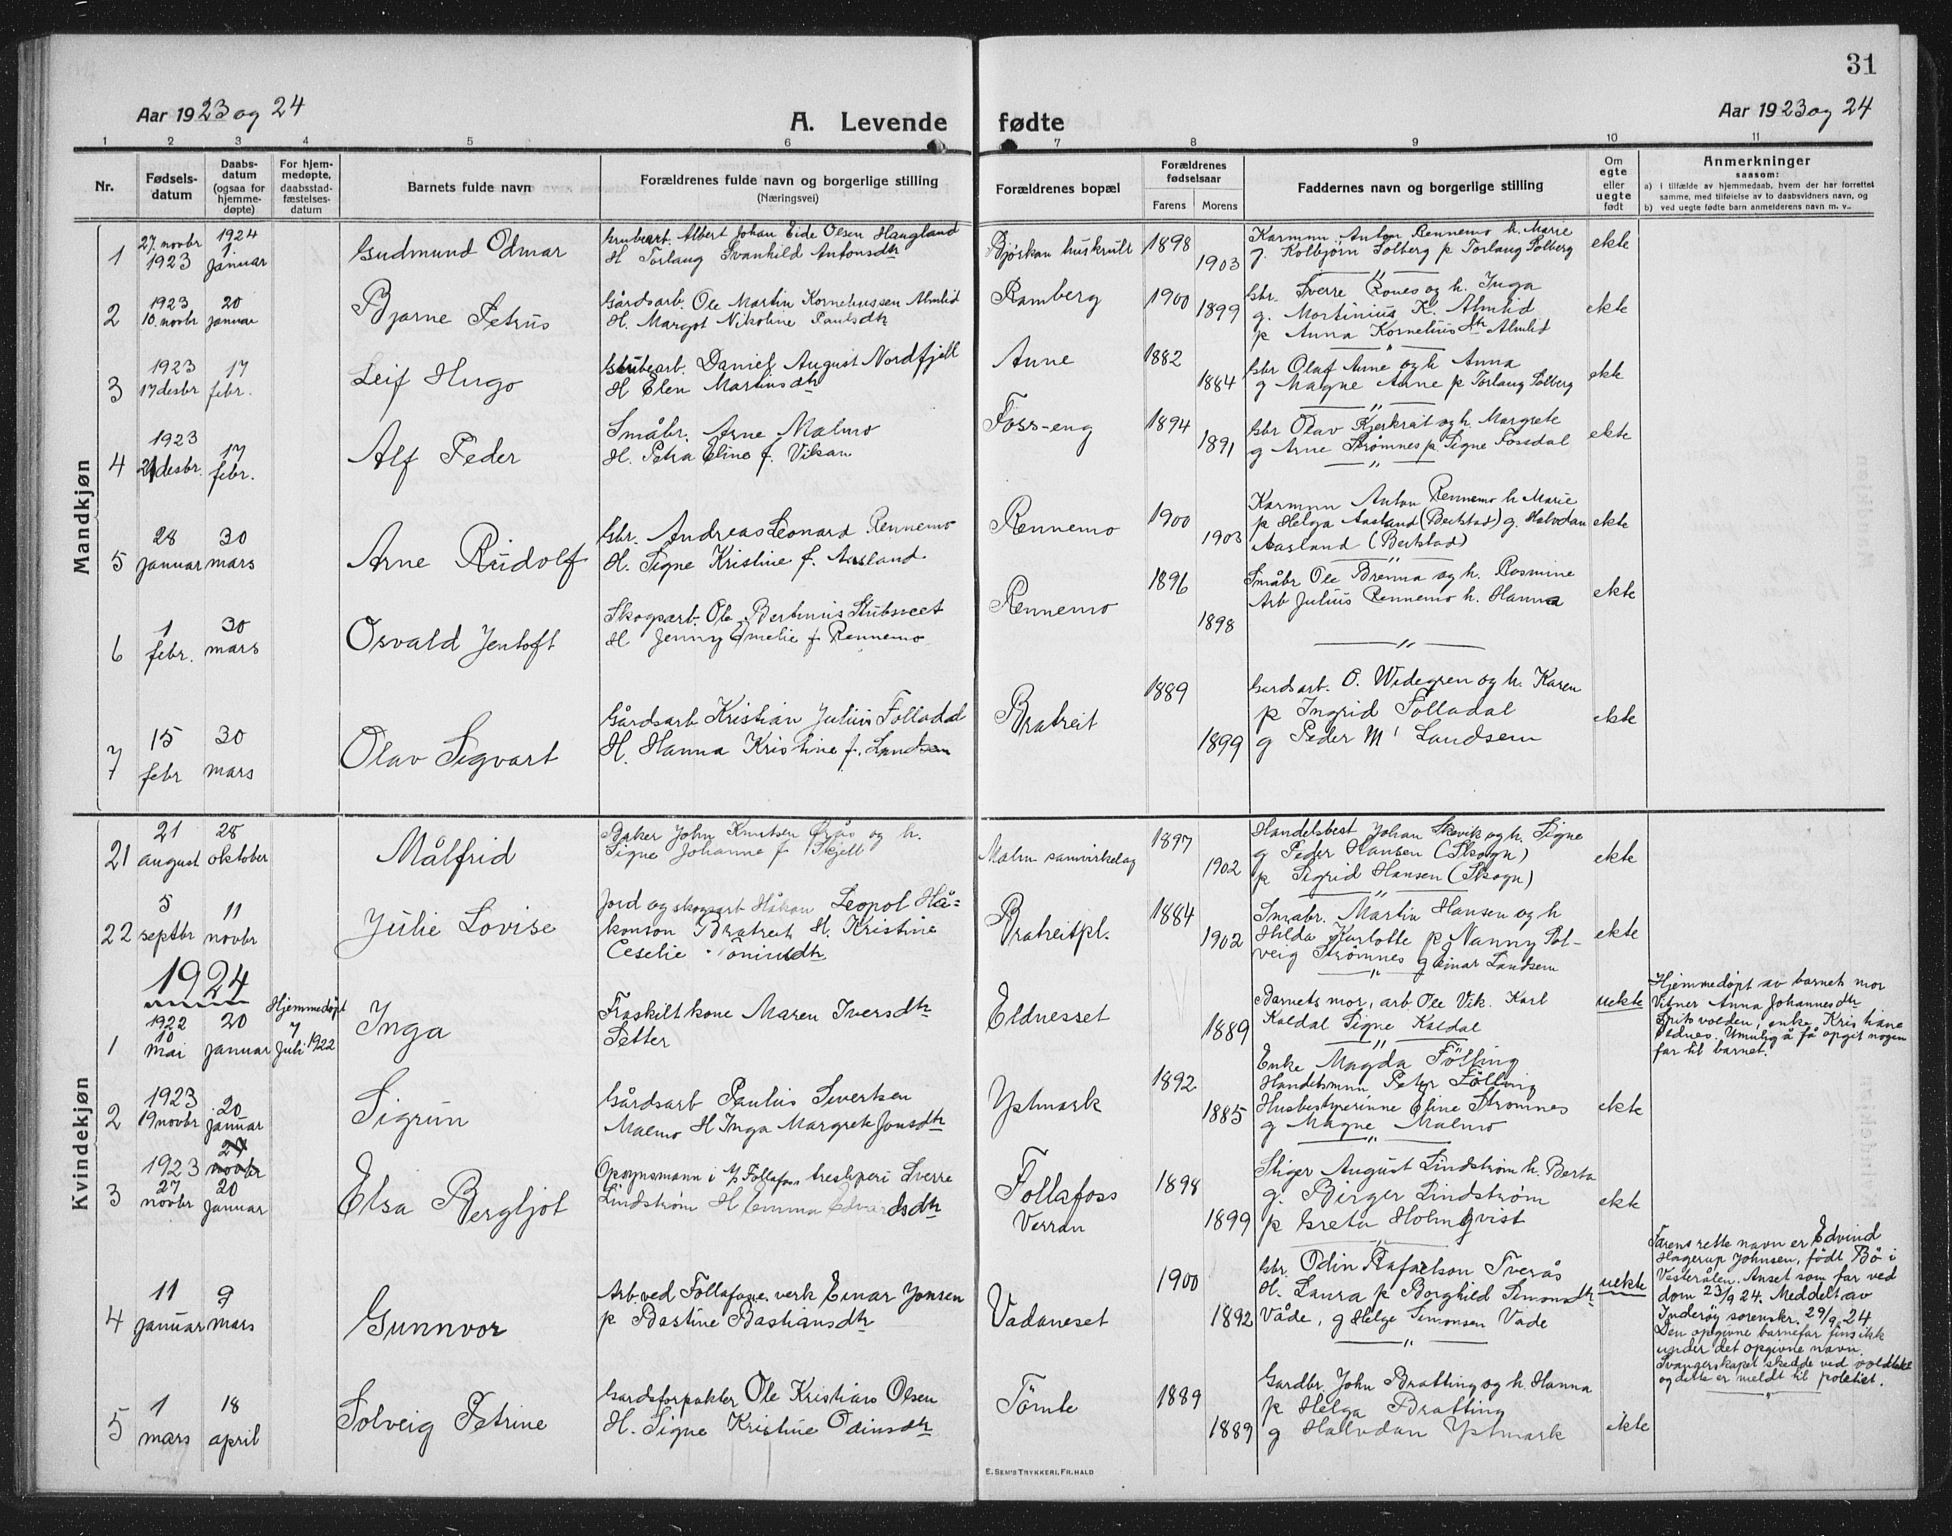 31
Aar 1923 og 24
A. Levende fødte
Aar 1923 og 24
1 2 3 4 5 6 7 8 9 10 11
Nr.
Fødsels-
datum
Daabs-
datum
(ogsaa for
hjemme-
døpte)
For hjem-
medøpte,
daabsstad-
fæstelses-
datum
Barnets fulde navn
Forældrenes fulde navn og borgerlige stilling
(Næringsvei)
Forældrenes bopæl
Forældrenes
fødselsaar
Farens Morens
Faddernes navn og borgerlige stilling
Om
egte
eller
uegte
født
Anmerkninger
saasom:
a) i tilfælde av hjemmedaab, hvem der har forrettet
samme, med tilføielse av to daabsvidners navn, og
b) ved uegte fødte barn anmelderens navn m. v..
Mandkjøn
1
27. novbr
1923
1924
1
januar
Gudmund Odmar
Grubearb. Albert Johan Eide Olsen Haugland
H Torlaug Svanhild Antonsdtr
1898
1903
Karmnn Anton Rennemo h. Marie
g. Kolbjörn Solberg p Torlaug Solberg
ekte
2
1923
10. novbr
20
januar
Bjarne Petrus
Gårdsarb. Ole Martin Korneliussen Almlid
H. Margot Nikoline Paulsdtr
Ramberg
1900
1899
Gbr. Sverre Rones og h. Inga
g. Mortinius K. Almlid
p Anna Korneliusdtr Almlid
ekte
3
1923
17 desbr
17
febr.
Leif Hugo
Grubearb. Daniel August Nordfjell
H Elen Martinsdtr
Aune
1882
1884
Gbr Olaf Aune og h Anna
g Magne Aune p Torlaug Solberg
ekte
4
1923
21 desbr.
17
febr.
Alf Peder
Småbr. Arne Malmo
H. Petra Eline f. Vikan
Foss-eng
1894
1891
Gbr Olav Kjerkrøt og h. Margrete
g Arne Strømnes p. Signe Fosdal
ekte
5
28
januar
30
mars
Arne Rudolf
Gbr. Andreas Leonard Rennemo
H. Signe Kristine f. Aasland
Rennemo
1900
1903
Karmnn Anton Rennemo h Marie
p Helga Aasland (Beitstad) g. Halvdan
Aasland (Beitstad)
ekte
6
1
febr.
30
mars
Osvald Jentoft
Skogsarb. Ole Bertinius Stubsveet
H Jenny Emelie f Rennemo
Rennemo
1896
1898
Småbr Ole Brenna og h. Rosmine
Arb Julius Rennemo h. Hanna
ekte
7
15
febr
30
mars
Olav Sigvart
Gårdsarb Kristian Julius Folladal
H. Hanna Kristine f. Landsem
Bratreit
1889
1899
Gardsarb. O. Widegren og h. Karen
p Ingrid Folladal
g Peder M' Landsem
ekte
Kvindekjøn
21
21
august
28
oktober
Målfrid
Baker John Knutsen og h.
Signe Johanne f. Skjell
Malm samvirkelag
1897
1902
Handelsbest Johan Skevik og h. Signe
g Peder Hansen (Skogn)
p Sigrid Hansen (Skogn)
ekte
22
5
septbr
11
novbr
Julie Lovise
Jord og skogsarb Håkon Leopol Hå=
konson Bratreit H. Kristine
Ceselie Toninidtr
Bratreitpl.
1884
1902
Småbr. Martin Hansen og h
Hilda Karlotte p Nanny Sol-
veig Strømnes g Einar Landsem
ekte
1924
1
1922
10
mai
20
januar
Hjemmedøpt
7
Juli 1922
Inga
Fraskilt kone Maren Iversdtr
Setter
Eldnesset
1889
Barnets mor, arb Ole Vik. Karl
Kaldal Signe Kaldal
Enke Magda Fölling
uekte
Hjemmedøpt av barnets mor
Vitner Anna Johannesdtr
Spitsvolden, enke Kristiane
Eldnes. Umulig å få opgit nogen
far til barnet.
2
1923
19 novbr
20
januar
Sigrun
Gårdsarb Paulus Sivertsen
Malmo H Inga Margrete Jonsdtr
Ystmark
1892
1885
Handelsmnn Peter Fölling
Husbestyrerinne Eline Strømnes
g Magne Malmo
ekte
3
1923
27
novbr
27
novbr
20
januar
Elsa Bergljot
Opsynsmann i A/S Follafoss tresliperi Sverre
Lindstrøm H Emma Edvardsdtr
Follafoss
Verran
1898
1899
Stiger August Lindstrøm h. Berta
g. Birger Lindstrøm
p Greta Holmqvist
ekte
4
11
januar
9
mars
Gunnvor
Arb. ved Follafoss verk Einar Jonsen
p Bastine Bastiansdtr
Vadaneset
1900
1892
Gbr. Odin Rafaelson Tverås
H. Laura p Borghild Simonsdtr
Våde, g Helge Simonsen Våde
uekte
Farens rette navn er Edvind
Hagerup Johnsen, født Bö i
Vesterålen. Anset som far ved
dom 23/9 24. Meddelt av
Inderöy sorenskr. 29/9. 24
Den opgivne barnefar fins ikk
under det opgivne navn.
Svangerskapet skedde ved voldtekt
og dette er meldt til politiet.
5
1
mars
18
april
Solveig Petrine
Gardsforpakter Ole Kristian Olsen
H. Signe Kristine Odinsdtr
Tömte
1889
1889
Gardbr. John Bratting og h. Hanna
p Helga Bratting
g Halvdan Ystmark
ekte
E. SEM'S TRYKKERI, FR.HALD